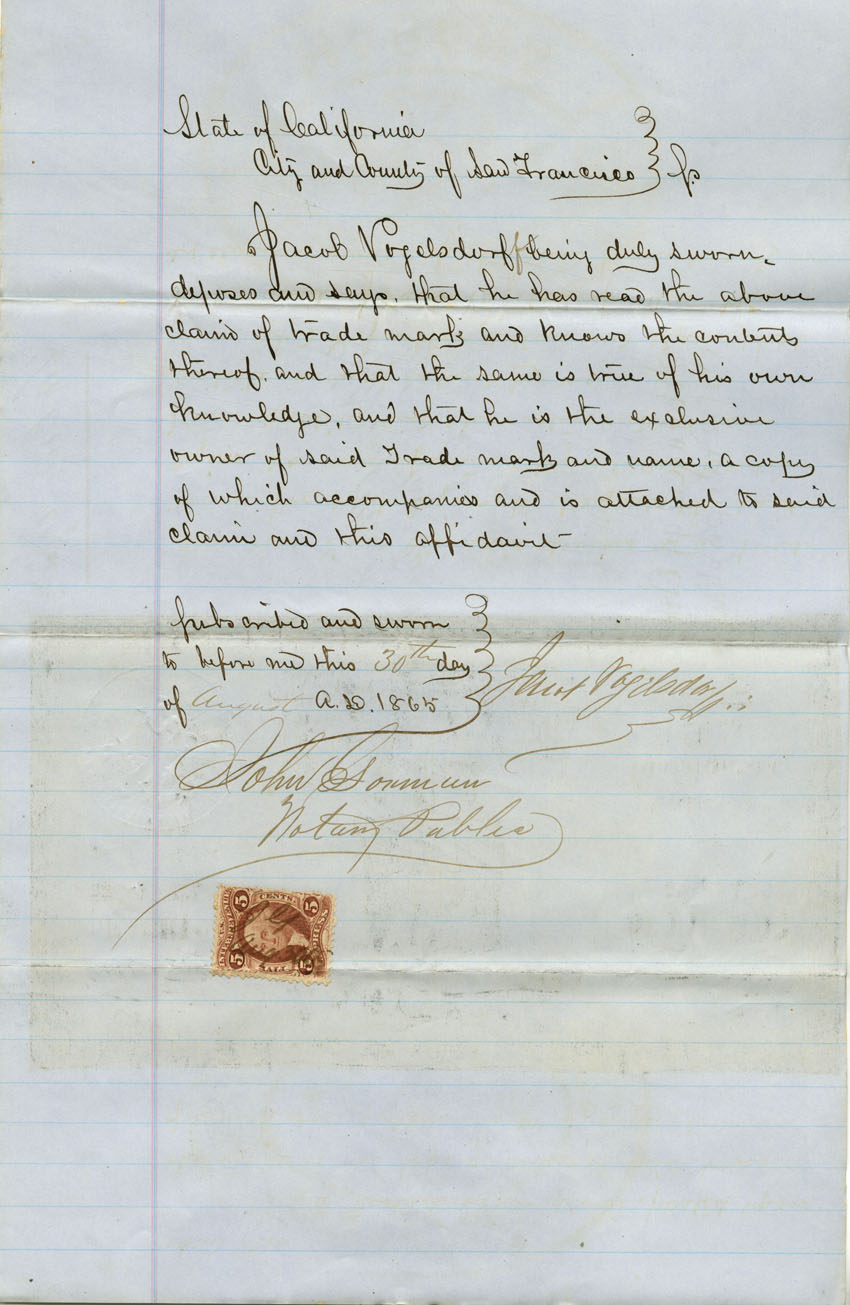 State of California
City and County of San Francisco } ss
Jacob Vogelsdorff being duly sworn,
deposes and says, that he has read the above
claim of trade mark and knows the contents
thereof, and that the same is true of his own
knowledge, and that he is the exclusive
owner of said Trade mark and name, a copy
of which accompanies and is attached to said
claim and this affidavit
Subscribed and sworn
to before me this 30th day
of August A.D. 1865
Jacob Vogelsdorff
John Gorman
Notary Public
5 CENTS 5
U.S. INTER. REV.
EXPRESS
5 FIVE 5